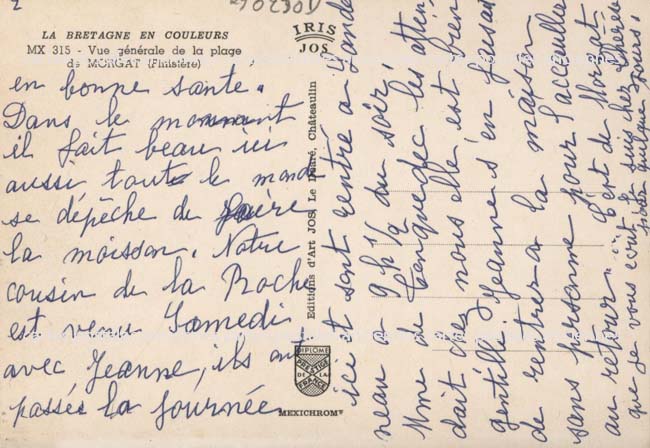 LA BRETAGNE EN COULEURS
MX 315 - Vue générale de la plage
de MORGAT (Finistère)
IRIS
JOS
en bonne santé.
Dans le moment
il fait beau ici
aussi tout le monde
se dépêche de faire
la moisson. Notre
cousin de la Roche
est venu Samedi
avec Jeanne, ils ont
passée la journée
Editions d'Art JOS Le Doaré, Châteaulin
DIPLOME
PRESTIGE
DE LA
FRANCE
MEXICHROME
ici et sont rentré a Lande
neau a 9h½ du soir,
Mme de Penquedec les atten
dait chez nous elle est bien
gentille Jeanne s'en faisait
de rentrer a la maison
sans personne pour l'accueillir
au retour. C'est de Morgat
que je vous écrit je suis chez Thérèse
pour quelque jours.